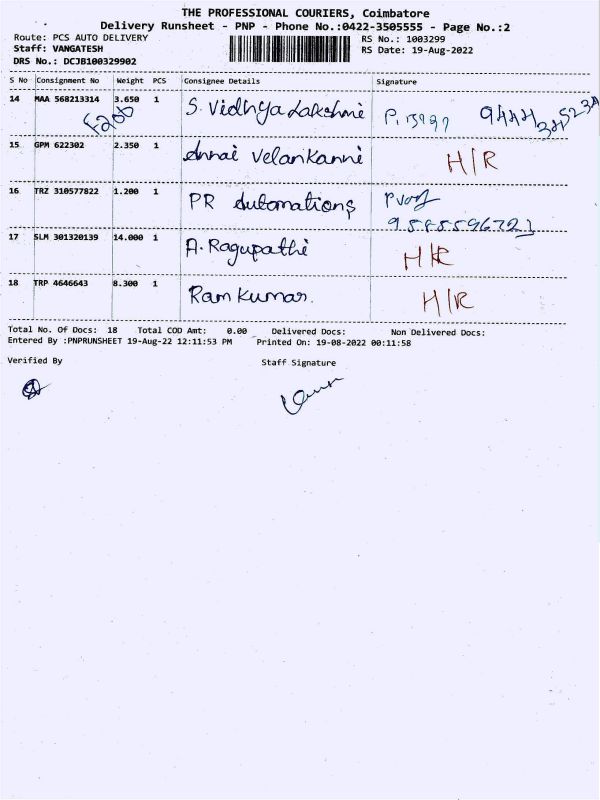 THE PROFESSIONAL COURIERS, Coimbatore
Delivery Runsheet - PNP - Phone No.:0422-3505555 - Page No.:2
Route: PCS AUTO DELIVERY
RS No.: 1003299
Staff: VANGATESH
RS Date: 19-Aug-2022
DRS No.: DCJB100329902
S No Consignment No Weight PCS Consignee Details Signature
14 MAA 568213314 3.650 1 S. Vidhya Lakshmi
15 GPM 622302 2.350 1 Annai Velankanni H/R
16 TRZ 310577822 1.200 1 PR Automations
9585596721
17 SLM 301320139 14.000 1 A. Ragupathi H/R
18 TRP 4646643 8.300 1 Ram Kumar. H/R
Total No. Of Docs: 18 Total COD Amt: 0.00 Delivered Docs: Non Delivered Docs:
Entered By :PNPRUNSHEET 19-Aug-22 12:11:53 PM Printed On: 19-08-2022 00:11:58
Verified By Staff Signature